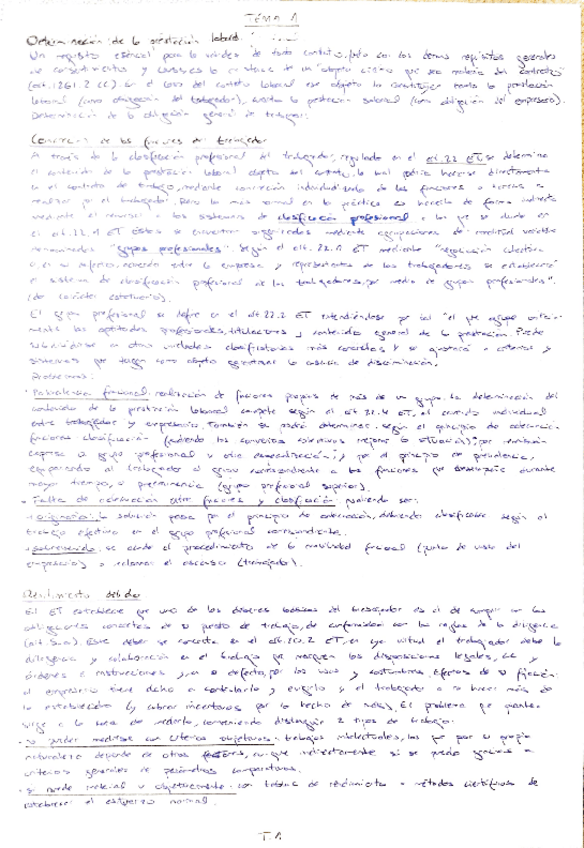 TEMA 1
Determinación de la prestación laboral
Un requisito esencial para la validez de todo contrato, junto con los demás requisitos generales
de consentimiento y causa es la existencia de un "objeto cierto que sea materia del contrato"
(art. 1261.2 CC). En el caso del contrato laboral ese objeto lo constituye tanto la prestación
laboral (como obligación del trabajador), como la prestación salarial (como obligación del empresario).
Determinación de la obligación general de trabajar.
Concreción de las funciones del trabajador
A través de la clasificación profesional del trabajador, regulada en el art. 22 ET se determina
el contenido de la prestación laboral objeto del contrato, la cual podría hacerse directamente
en el contrato de trabajo, mediante concreción individualizada de las funciones o tareas a
realizar por el trabajador. Pero lo más normal en la práctica es hacerlo de forma indirecta
mediante el recurso a los sistemas de clasificación profesional a los que se alude en
el art. 22.1 ET. Estos se encuentran organizados mediante agrupaciones de
denominadas "grupos profesionales". Según el art. 22.1 ET mediante "negociación colectiva
o, en su defecto, acuerdo entre la empresa y representantes de los trabajadores se establecerá
el sistema de clasificación profesional de los trabajadores, por medio de grupos profesionales".
(de carácter estatutario).
El grupo profesional se define en el art 22.2 ET entendiéndose por tal "el que agrupe unitaria-
mente las aptitudes profesionales, titulaciones y contenido general de la prestación. Puede
subdividirse en otras unidades clasificatorias más concretas y se ajustará a criterios y
sistemas que tengan como objeto garantizar la ausencia de discriminación.
Problemas:
· Polivalencia funcional: realización de funciones propias de más de un grupo. La determinación del
contenido de la prestación laboral compete según el art 22.4 ET, al acuerdo individual
entre trabajador y empresario. También se podrá determinar, según el principio de adecuación
funciones clasificación (pudiendo los convenios colectivos mejorar la situación); por remisión
expresa a grupo profesional u otra ; y por el principio de prevalencia,
equiparando al trabajador al grupo correspondiente a las funciones que desempeñe durante
mayor tiempo, o permanencia (grupo profesional superior).
· Falta de adecuación entre funciones y clasificación: pudiendo ser:
- originaria: la solución pasa por el principio de adecuación, debiendo clasificarse según el
trabajo efectivo en el grupo profesional correspondiente.
- sobrevenida: se acude al procedimiento de la movilidad funcional (punto de vista del
empresario) o reclamar el ascenso (trabajador).
Rendimiento debido
El ET establece que uno de los deberes básicos del trabajador es el de cumplir con las
obligaciones concretas de su puesto de trabajo, de conformidad con las reglas de la diligencia
(art. 5.a). Este deber se concreta en el art. 20.2 ET, en cuya virtud el trabajador debe la
diligencia y colaboración en el trabajo que marquen las disposiciones legales, CC y
órdenes e instrucciones y, en su defecto, por los usos y costumbres. Efectos de su fijación:
el empresario tiene dcho a controlarlo y exigirlo y el trabajador a no hacer más de
lo establecido (y cobrar incentivos por lo hecho de más). El problema que plantea
surge a la hora de medirlo, conviniendo distinguir 2 tipos de trabajo:
- no puede medirse con criterios objetivos: trabajos intelectuales, los que por su propia
naturaleza depende de otros factores, aunque indirectamente sí se puede gracias a
criterios generales de parámetros comparativos.
- sí puede medirse objetivamente: con tablas de rendimiento o métodos científicos de
establecer el esfuerzo normal.
T.1